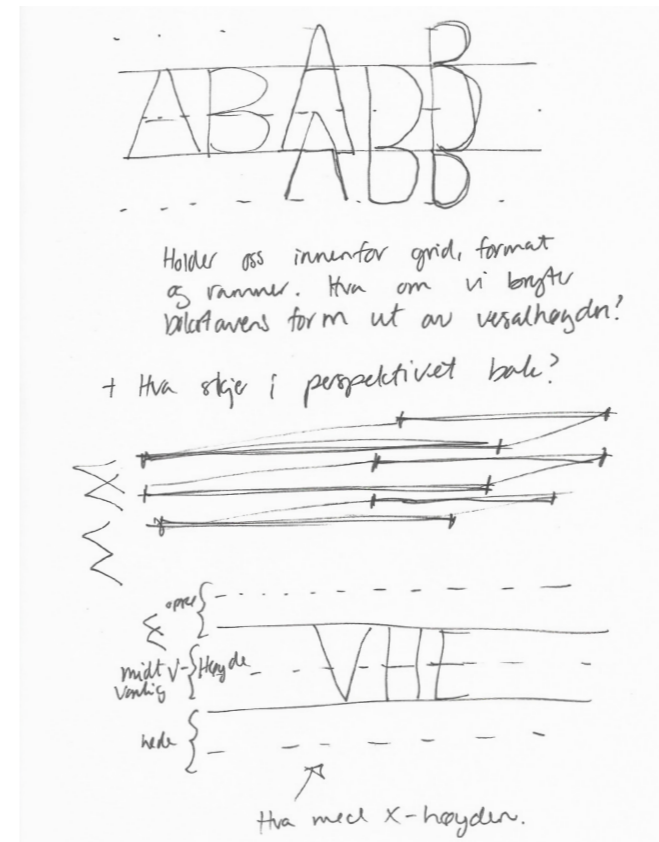 A B A D B
A B B
Holder oss innenfor grid, format
og rammer. Hva om vi bryter
bokstavens form ut av versalhøyden?
+ Hva skjer i perspektivet bak?
øvre
V H E
midt V-Høyde
Vanlig
nede
Hva med X-høyden.